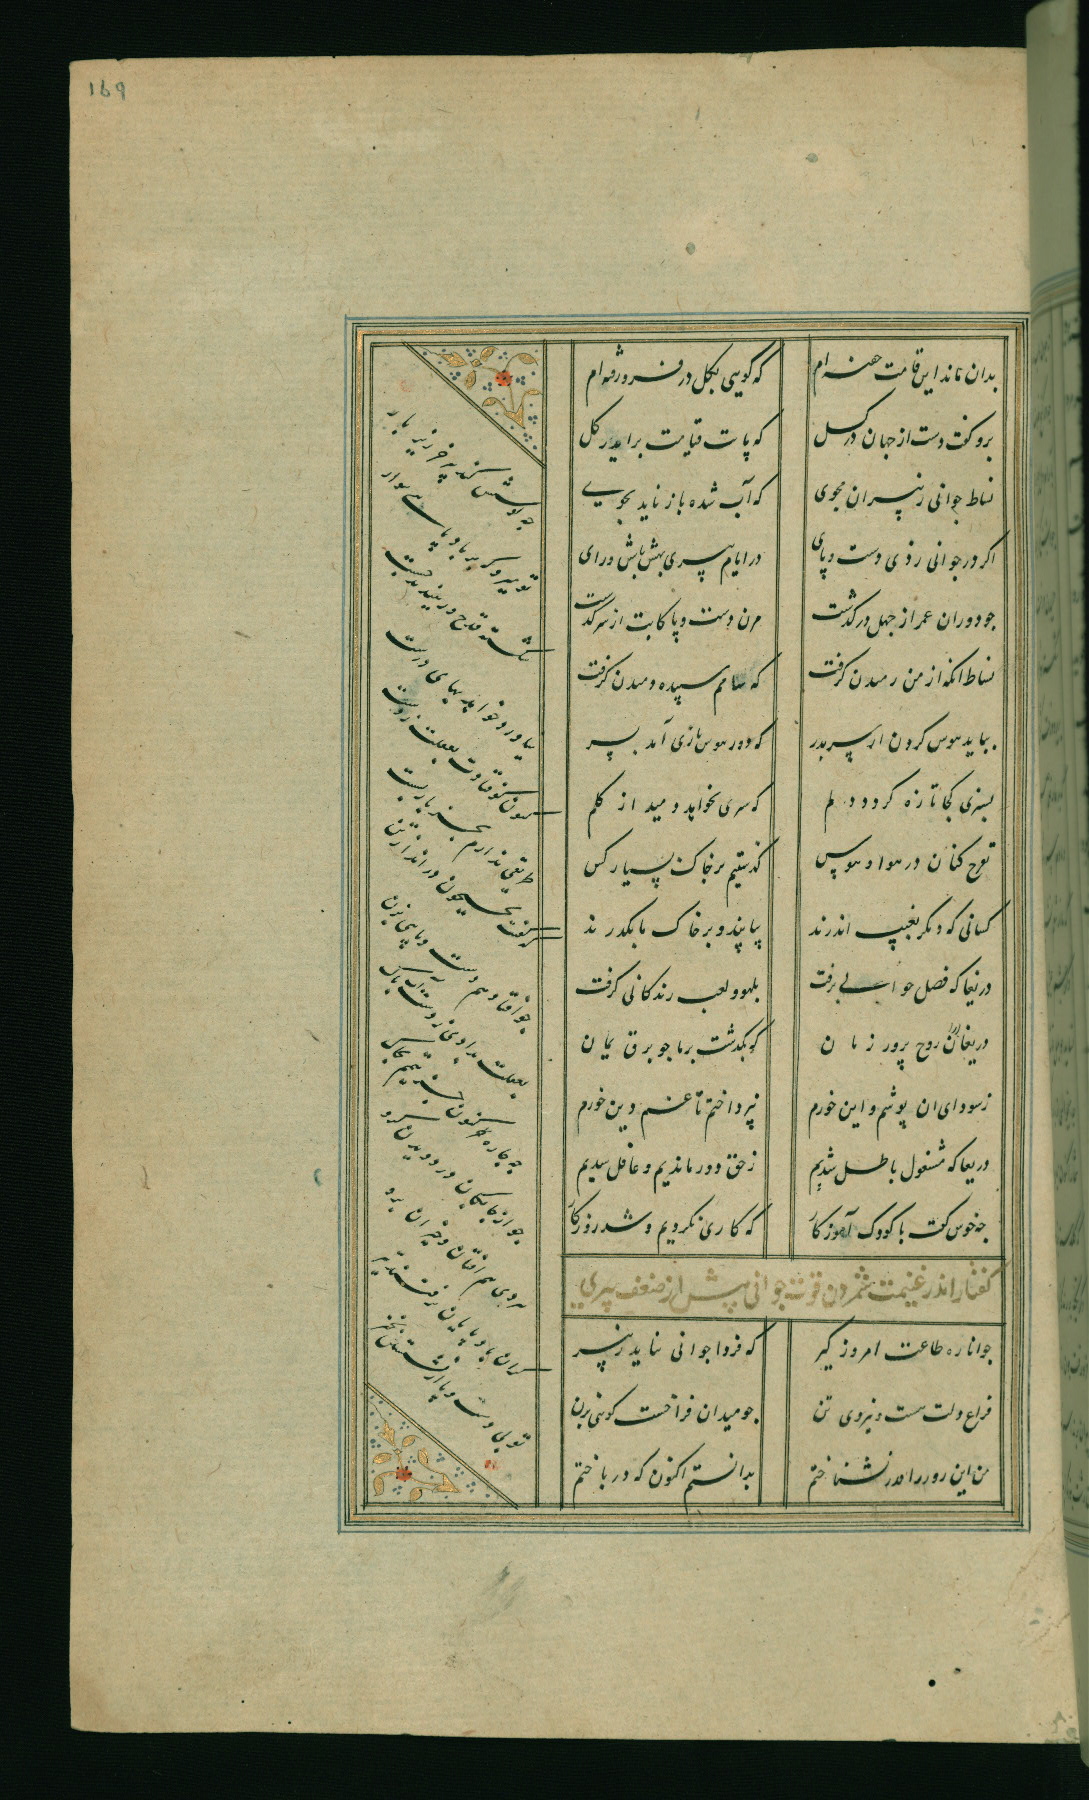 169
بدان ماند این قامت خفته‌ام که گویی بگل در فرو رفته‌ام
برو گفت دست از جهان در گسل که پات قیامت برآید ز گل
نشاط جوانی ز پیران مجوی که آب شده باز ناید بجوی
اگر در جوانی زدی دست و پای در ایام پیری بهش باش و رای
چو دوران عمر از چهل درگذشت مزن دست و پا کابت از سر گذشت
نشاط آنگه از من رمیدن گرفت که شامم سپیده دمیدن گرفت
بباید هوس کردن از سر بدر که دور هوس بازی آمد بسر
بسبزی کجا تازه گردد دلم که سبزی بخواهد دمید از گلم
تفرج کنان در هوا و هوس گذشتیم بر خاک بسیار کس
کسانی که دیگر بغیب اندرند بیایند و بر خاک ما بگذرند
دریغا که فصل جوانی برفت بلهو و لعب زندگانی گرفت
دریغا چنان روح پرور زمان که بگذشت بر ما چو برق یمان
ز سودای آن پوشم و این خورم نپرداختم تا غم دین خورم
دریغا که مشغول باطل شدیم ز حق دور ماندیم و غافل شدیم
چه خوش گفت با کودک آموزگار که کاری نکردیم و شد روزگار
گفتار اندر غنیمت شمردن قوت جوانی پیش از ضعف پیری
جوانا ره طاعت امروز گیر که فردا جوانی نیاید ز پیر
فراغ دلت هست و نیروی تن چو میدان فراخست گویی بزن
من این روز را قدر نشناختم بدانستم اکنون که در باختم
چه کوشش کند پیر خر زیر بار
تو میرو که بر باد پایی سوار
شکسته قدح ور ببندند چست
نیاورد خواهد بهای درست
کنون کوفتادت بغفلت ز دست
طریقی ندارد بجز باز بست
که گفتت بجیحون در انداز تن
چو افتاد هم دست و پایی بزن
بغفلت بدادی ز دست آب پاک
چه چاره کنون جز تیمم بخاک
چو از چابکان در دویدن گرو
نبردی هم افتان و خیزان برو
گر آن باد پایان برفتند تیز
تو بی دست و پا از نشستن بخیز